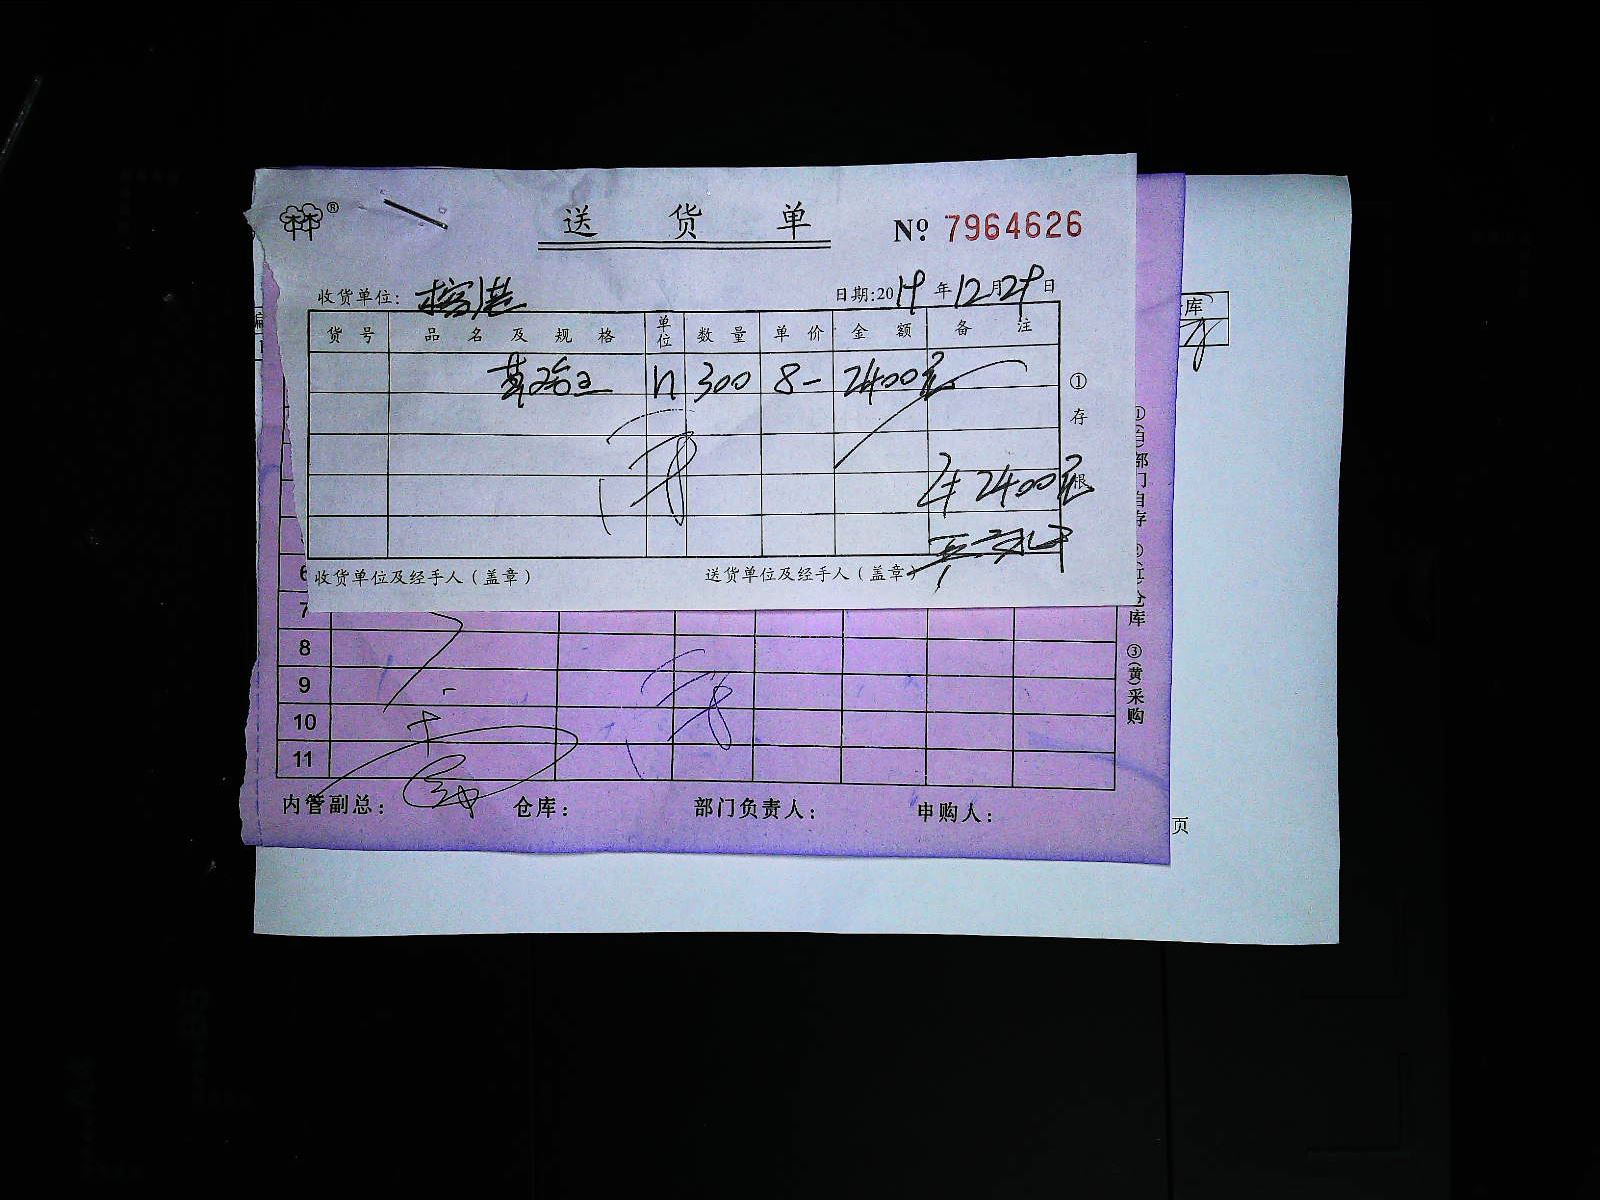 ®
送 货 单
№ 7964626
收货单位: 榕港
日期:2019年12月29日
货号 品名及规格 单位 数量 单价 金额 备注
300 8- 2400元
2400元
①存根
收货单位及经手人（盖章）
送货单位及经手人（盖章）
库
6
7
8
9
10
11
内管副总:
仓库:
部门负责人:
申购人:
部门自存
仓库
③(黄)采购
页